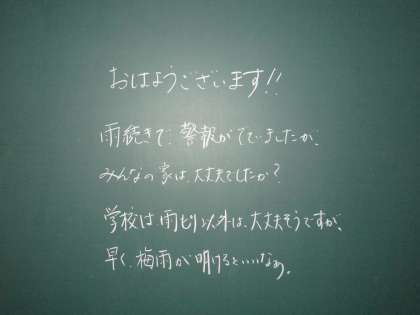 おはようございます!!
雨続きで、警報がでていましたが、
みんなの家は、大丈夫でしたか?
学校は雨もり以外は、大丈夫そうですが、
早く、梅雨が明けるといいなぁ。